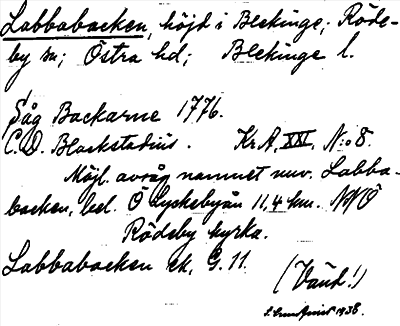 Labbabacken, höjd i Blekinge; Röde-
by sn; Östra hd; Blekinge l.
Såg Backarne 1776.
C.D. Blackstadius. Kr.A, XXI, N:o 8.
Möjl. avsåg namnet nuv. Labba-
backen, bel. Ö Lyckebyån 11,4 km. NNÖ
Rödeby kyrka.
Labbabacken ek, G. 11.
(Vänd!)
1938.